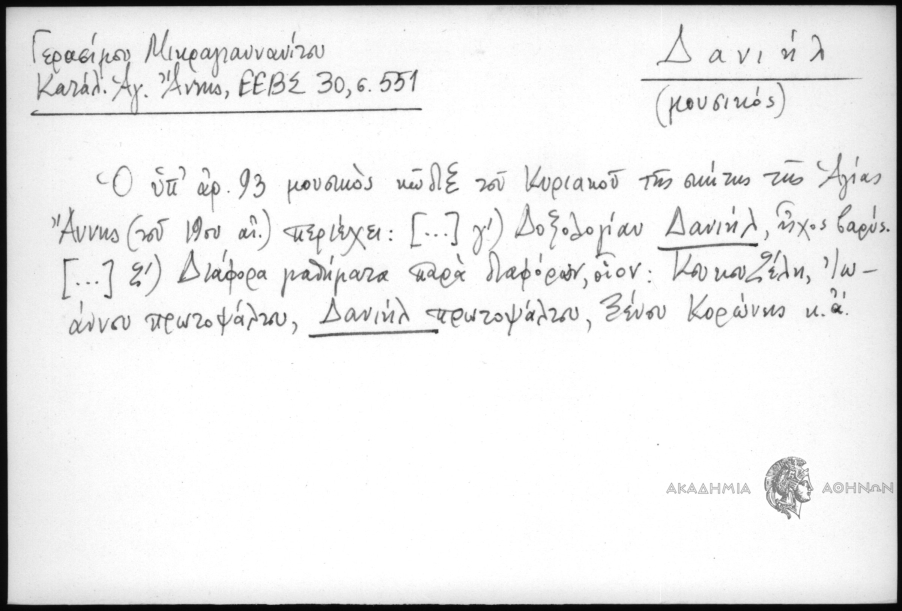 Γερασίμου Μικραγιαννανίτου
Κατάλ. Ἁγ. Ἄννης, ΕΕΒΣ 30, σ. 551
Δανιήλ
(μουσικός)
Ὁ ὑπ' ἀρ. 93 μουσικὸς κῶδιξ τοῦ Κυριακοῦ τῆς σκήτης τῆς Ἁγίας
Ἄννης (τοῦ 19ου αἰ.) περιέχει: [...] γ') Δοξολογίαν Δανιήλ, ἦχος βαρύς.
[...] ξ') Διάφορα μαθήματα παρὰ διαφόρων, οἷον: Κουκουζέλη, Ἰω-
άννου πρωτοψάλτου, Δανιήλ πρωτοψάλτου, Ξένου Κορώνης κ.ἄ.
ΑΚΑΔΗΜΙΑ ΑΘΗΝΩΝ